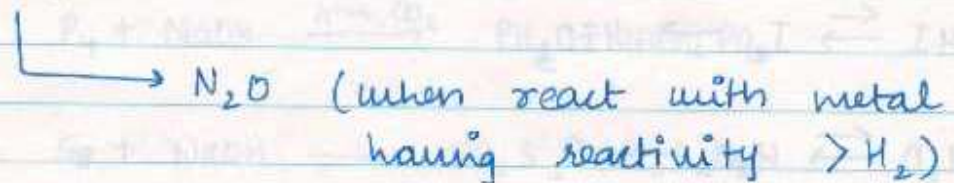 N₂O (when react with metal
having reactivity > H₂)